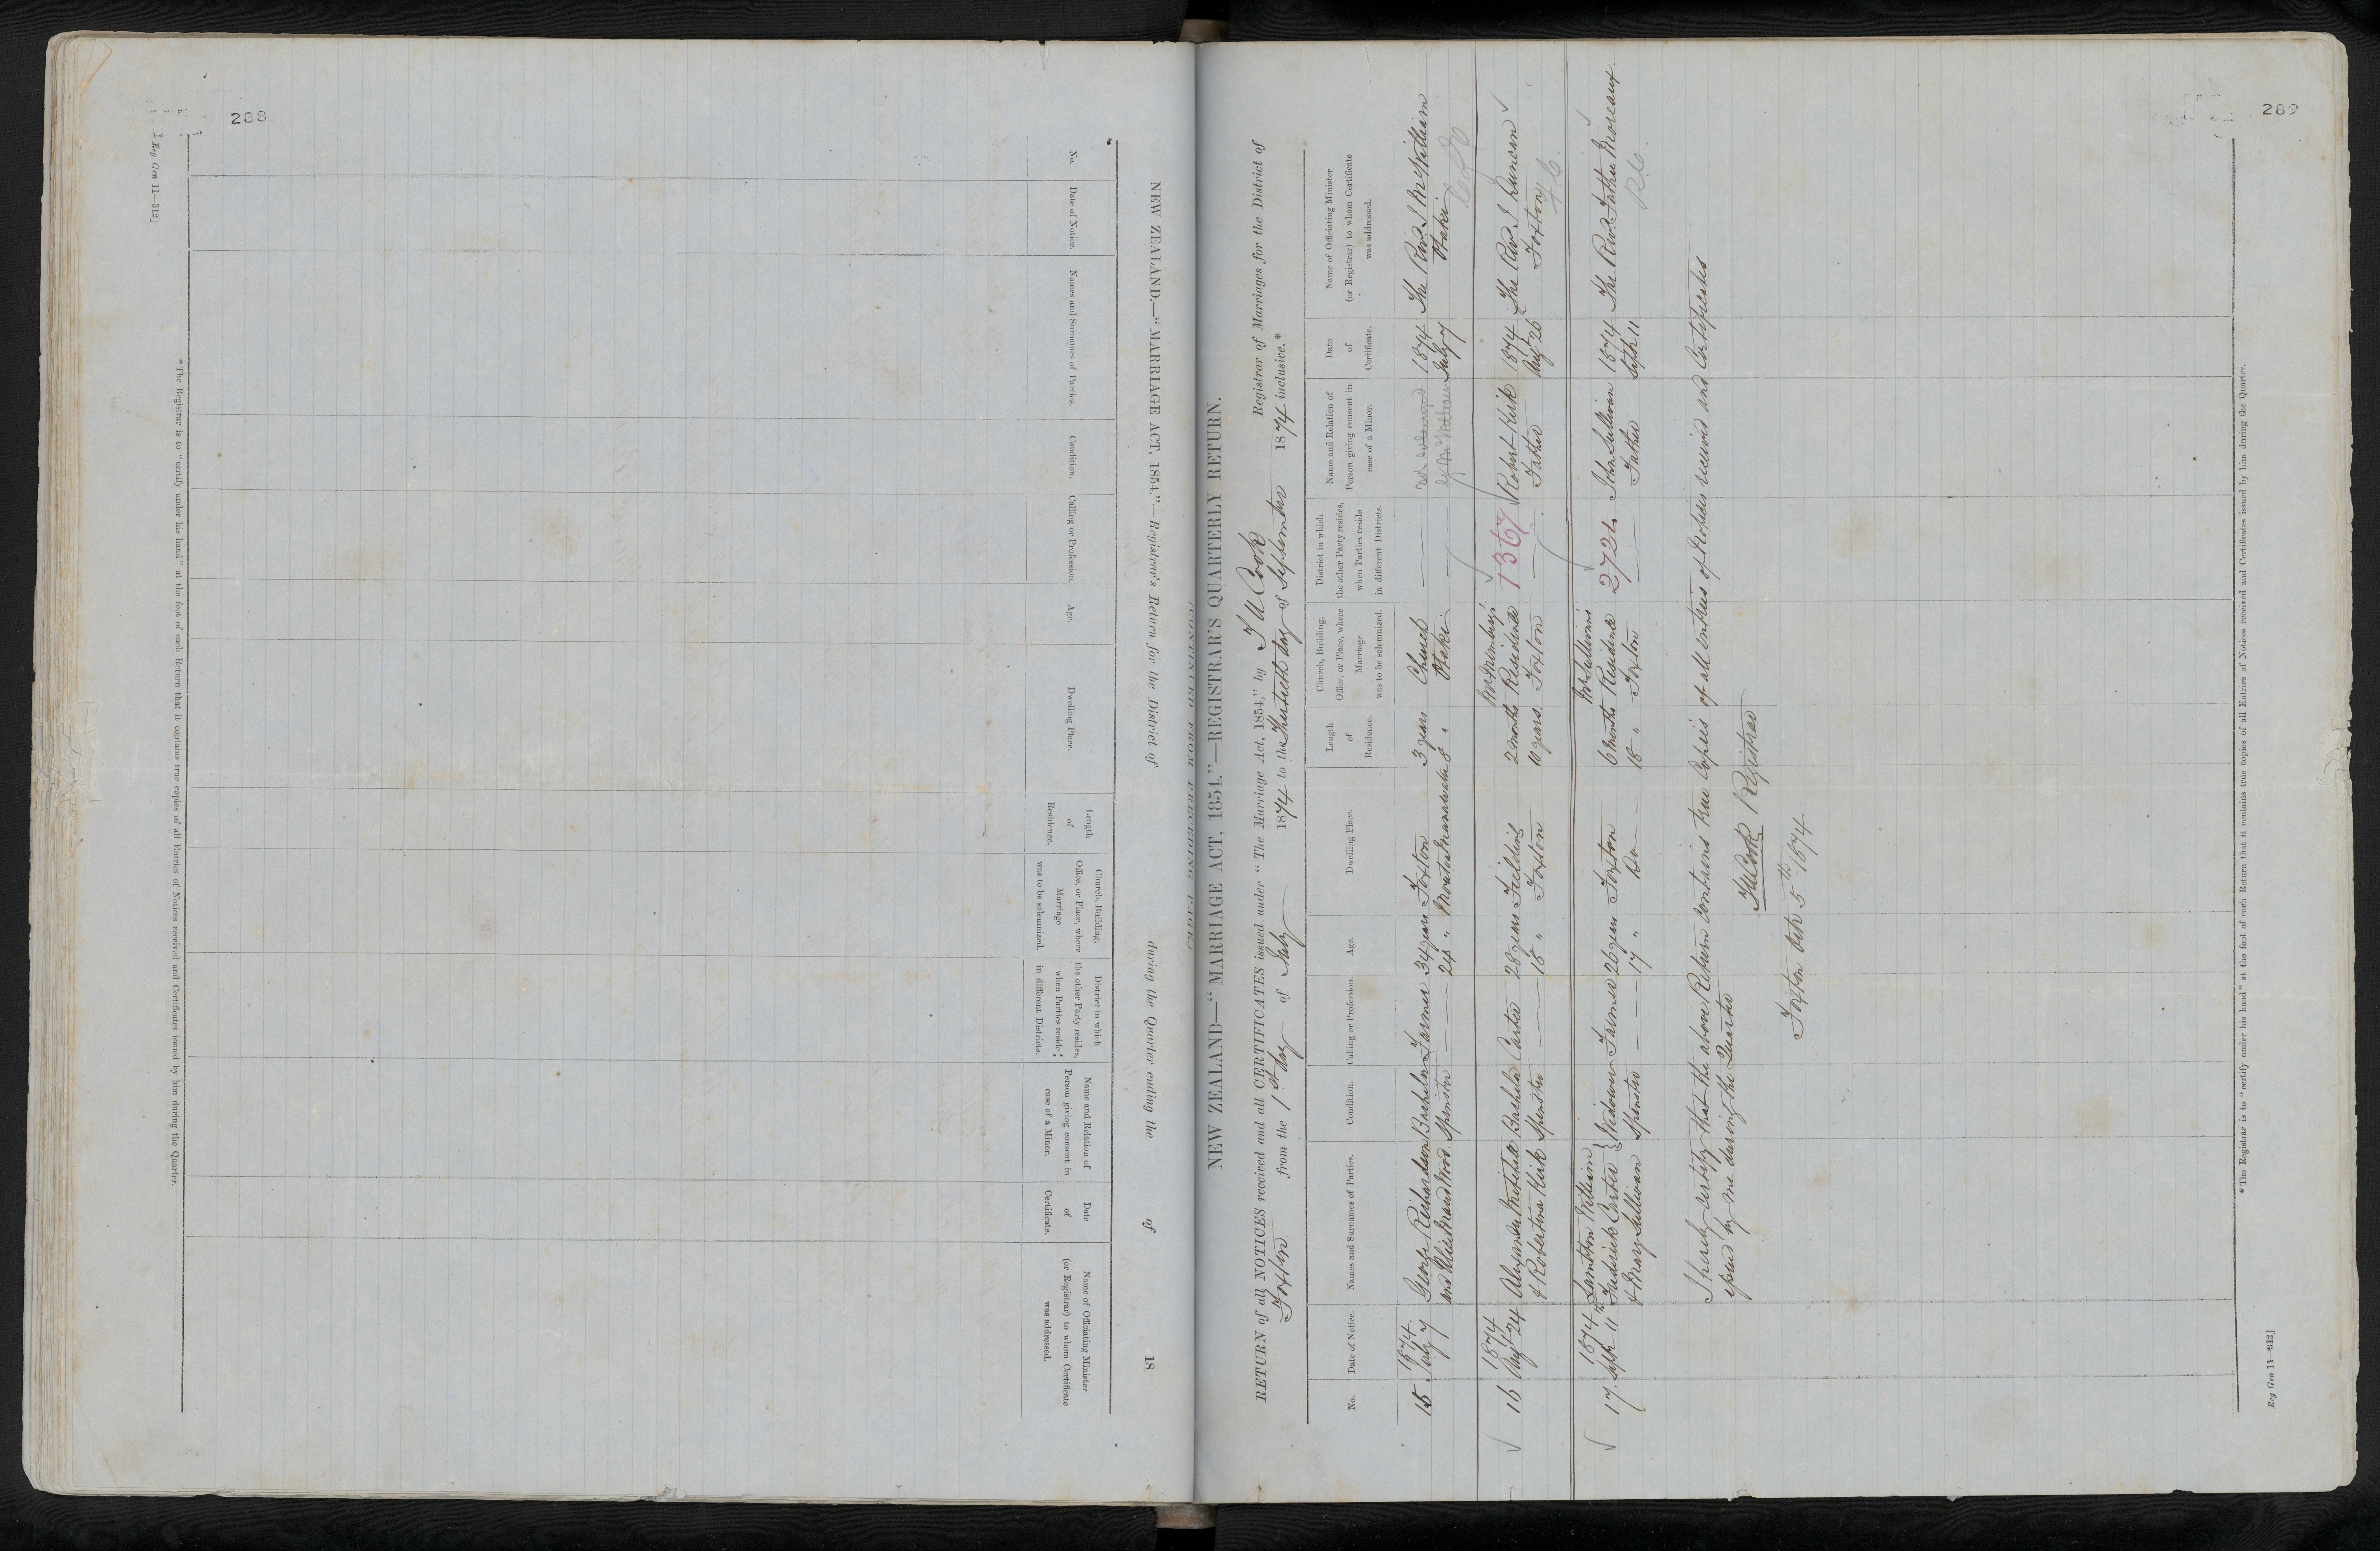 288
[Reg Gen 11—312]
NEW ZEALAND.—"MARRIAGE ACT, 1854."—Registrar's Return for the District of during the Quarter ending the of 18
No.
Date of Notice.
Names and Surnames of Parties.
Condition.
Calling or Profession.
Age.
Dwelling Place.
Length
of
Residence.
Church, Building,
Office, or Place, where
Marriage
was to be solemnized.
District in which
the other Party resides,
when Parties reside
in different Districts.
Name and Relation of
Person giving consent in
case of a Minor.
Date
of
Certificate.
Name of Officiating Minister
(or Registrar) to whom Certificate
was addressed.
* The Registrar is to "certify under his hand" at the foot of each Return that it contains true copies of all Entries of Notices received and Certificates issued by him during the Quarter.
289
NEW ZEALAND—"MARRIAGE ACT, 1854."—REGISTRAR'S QUARTERLY RETURN.
RETURN of all NOTICES received and all CERTIFICATES issued under "The Marriage Act, 1854," by F W Cook Registrar of Marriages for the District of
Foxton from the 1st day of July 1874 to the Thirtieth day of September 1874 inclusive.*
No.
Date of Notice.
Names and Surnames of Parties.
Condition.
Calling or Profession.
Age.
Dwelling Place.
Length
of
Residence.
Church, Building,
Office, or Place, where
Marriage
was to be solemnized.
District in which
the other Party resides,
when Parties reside
in different Districts.
Name and Relation of
Person giving consent in
case of a Minor.
Date
of
Certificate.
Name of Officiating Minister
(or Registrar) to whom Certificate
was addressed.
1874 1874
15 July 7 George Richardson Bachelor Farmer 34 years Foxton 3 years Church — not solemnized July 7 The Rev. J McWilliam
and Alice Maud Wood Spinster — 24 " Moutoa Manawatu 8 " Otaki — by McWilliam Otaki
C of E
1874 Mr 1874
16 Augt 24 Alexander Bachelor Carter 28 years Fielding 2 months Residence 1367 Robert Kirk Augt 26 The Rev J Duncan
& Robertina Kirk Spinster — 18 " Foxton 10 years. Foxton — Father Foxton
F.C.
1874 Lambton William Mr Sullivan's 1874
17. Septr 11th Frederick Carter } Widower Farmer 26 years Foxton 6 months Residence 2724 John Sullivan Septr 11 The Rev. Father Moreaux.
& Mary Sullivan Spinster — 17 " Do 18 " Foxton — Father
R.C.
I hereby certify that the above Return contains true Copies of all entries of Notices received and Certificates
issued by me during the Quarter
F W Cook Registrar
Foxton Octr 5th 1874
* The Registrar is to "certify under his hand" at the foot of each Return that it contains true copies of all Entries of Notices received and Certificates issued by him during the Quarter.
Reg Gen 11—312]